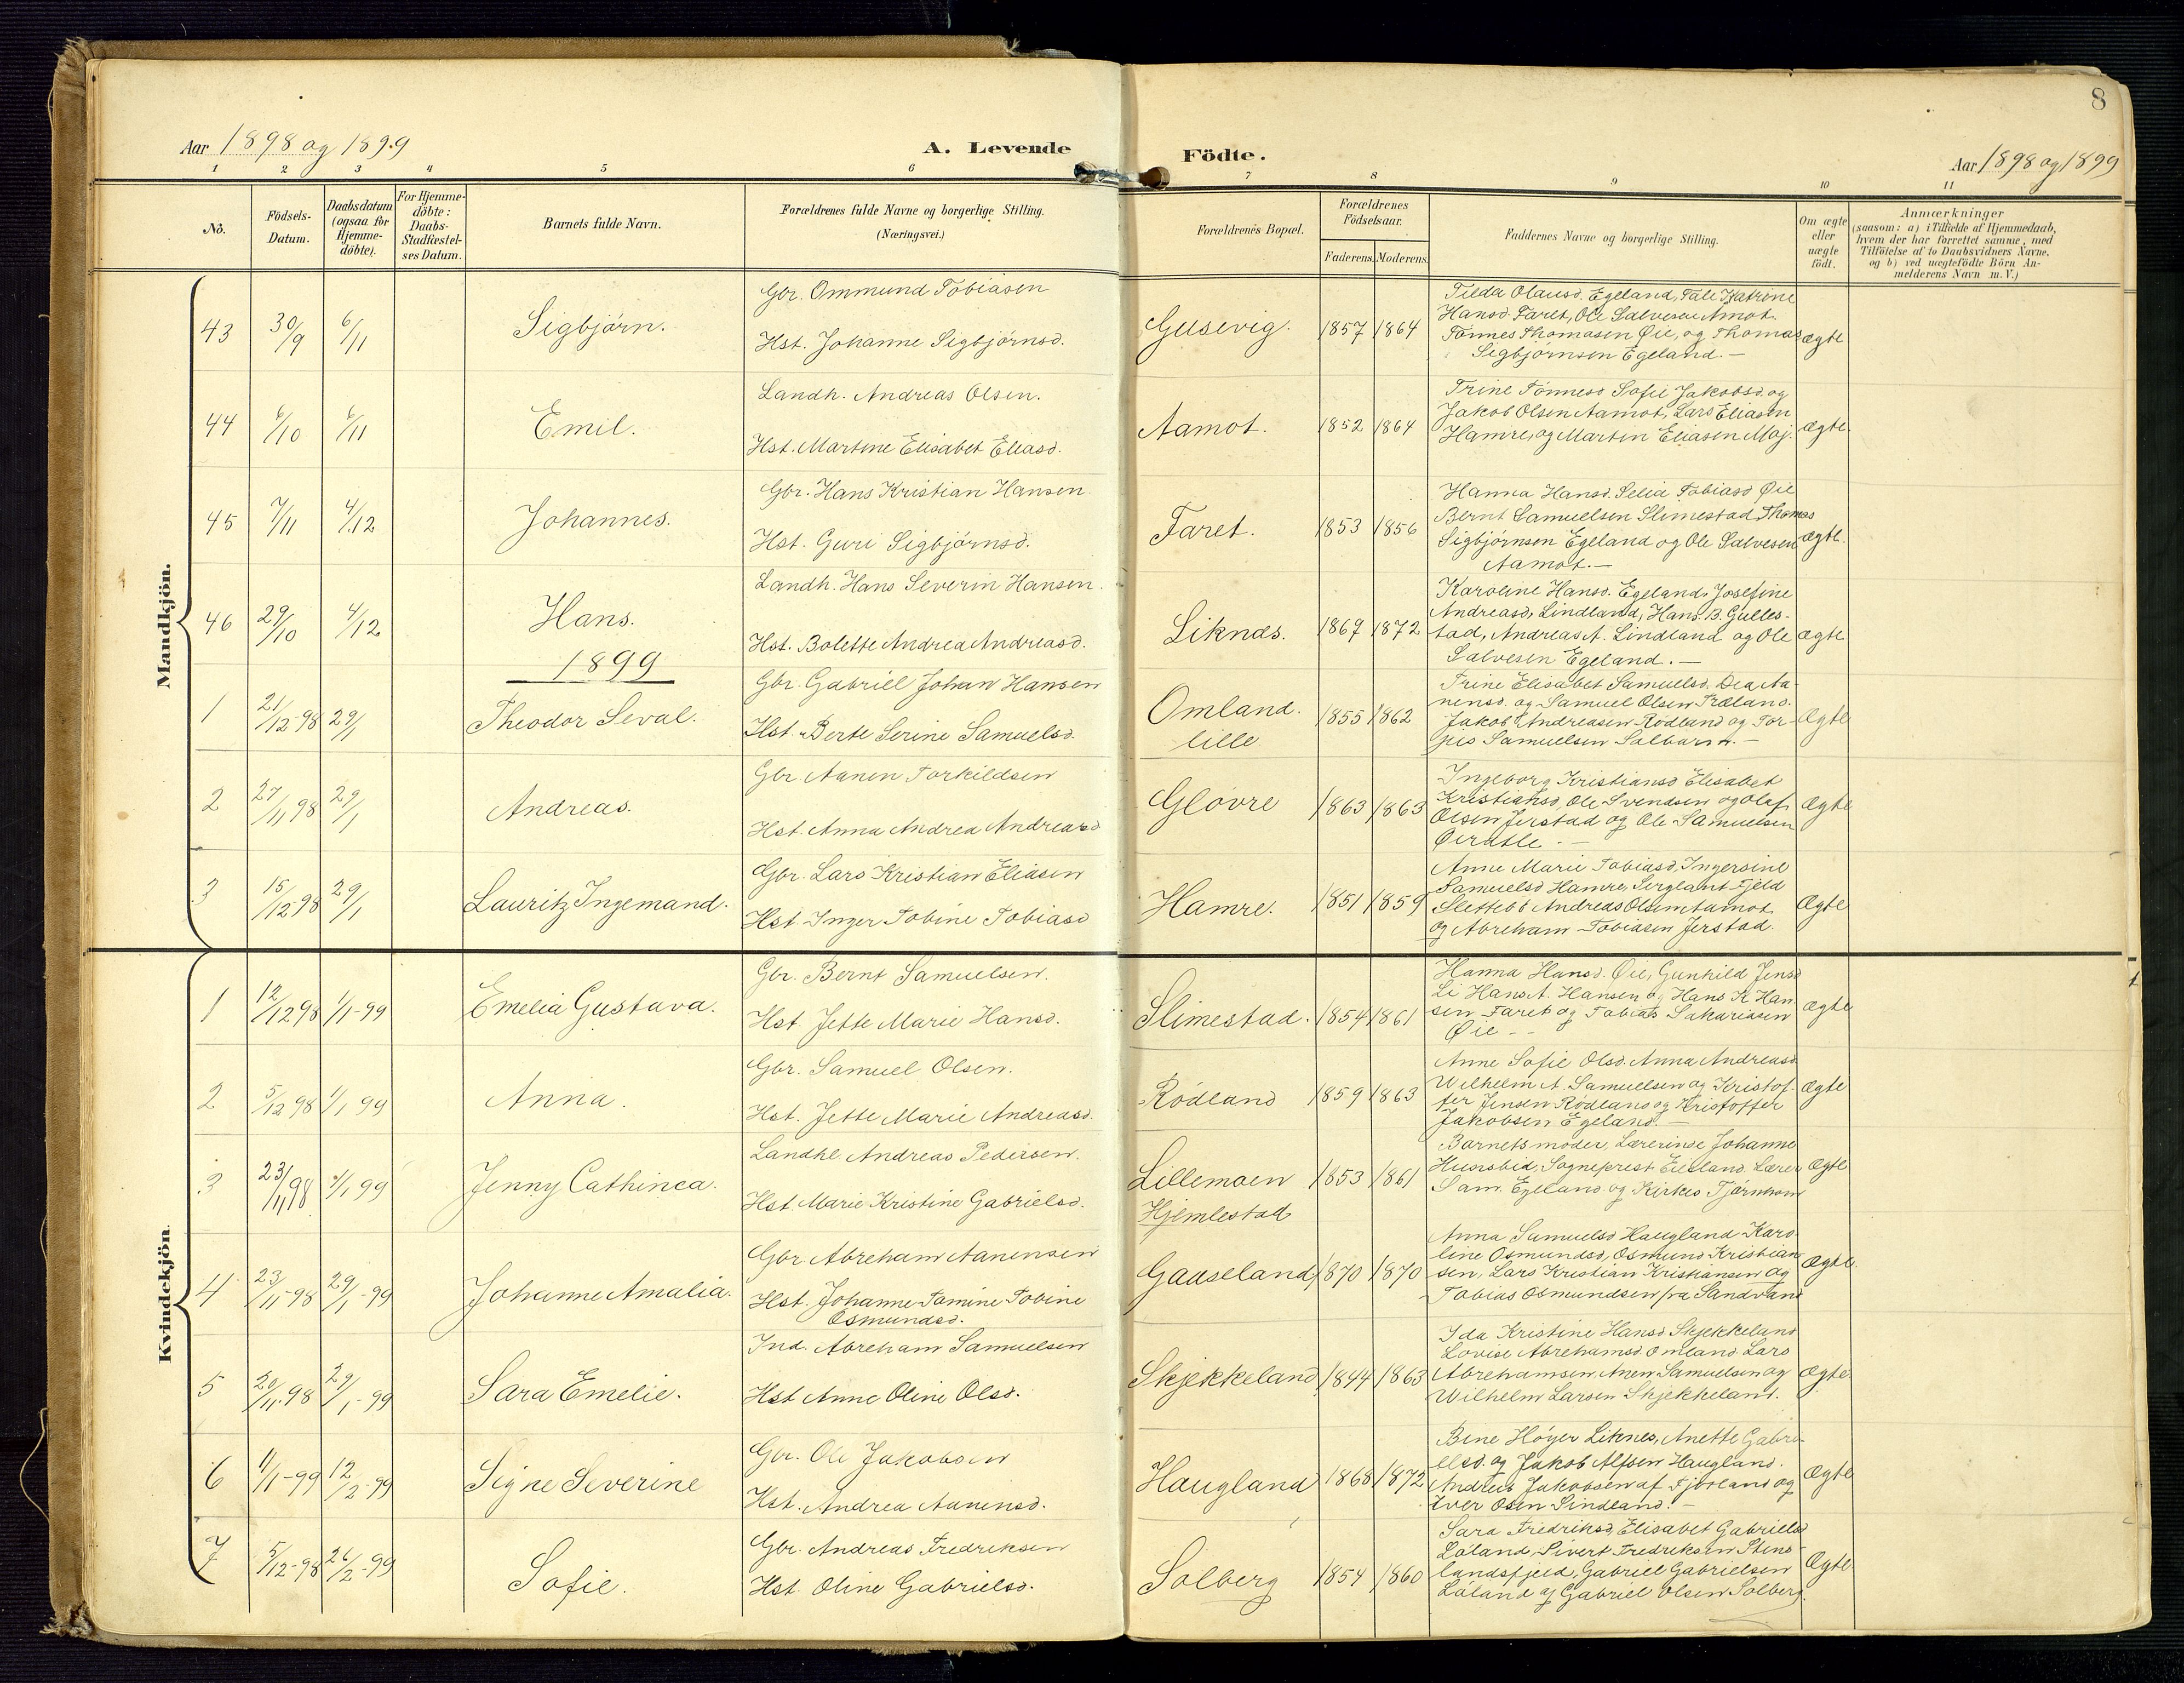 8
Aar 1898 og 1899
A. Levende
Födte.
Aar 1898 og 1899
1 2 3 4 5 6 7 8 9 10 11
No.
Födsels-
Datum.
Daabsdatum
(ogsaa for
Hjemme-
döbte).
For Hjemme-
döbte:
Daabs-
Stadfæstel-
ses Datum.
Barnets fulde Navn.
Forældrenes fulde Navne og borgerlige Stilling.
(Næringsvei.)
Forældrenes Bopæl.
Forældrenes
Födselsaar.
Faderens. Moderens.
Faddernes Navne og borgerlige Stilling.
Om ægte
eller
uægte
födt.
Anmærkninger
(saasom: a) i Tilfælde af Hjemmedaab,
hvem der har forrettet samme, med
Tilföielse af to Daabsvidners Navne,
og b) ved uægtefödte Börn An-
melderens Navn m. V.)
Mandkjön.
43 30/9 6/11 Sigbjørn.
Gbr. Ommund Tobiasen
Hst. Johanne Sigbjørnsd.
Gusevig. 1857 1864
Tilda Olausd. Egeland, Tale Katrine
Hansd. Faret, Ole Salvesen Amot.
Tønnes Thomasen Øie, og Thomas
Sigbjørnsen Egeland.—
ægte
44 6/10 6/11 Emil.
Landh. Andreas Olsen.
Hst. Martine Elisabet Eliasd.
Aamot. 1852 1864
Trine Tønnesd Sofie Jakobsd. og
Jakob Olsen Aamot, Lars Eliasen
Hamre, og Martin Eliasen Moj.
ægte.
45 7/11 4/12 Johannes.
Gbr. Hans Kristian Hansen
Hst. Guri Sigbjørnsd.
Faret. 1853 1856
Hanna Hansd. Selia Tobiasd Øie
Bernt Samuelsen Slimestad, Thomas
Sigbjørnsen Egeland og Ole Salvesen
Aamot.—
ægte.
46 29/10 4/12 Hans.
Landh. Hans Severin Hansen.
Hst. Bolette Andrea Andreasd.
Liknæs. 1869 1872
Karoline Hansd. Egeland, Josefine
Andreasd, Lindland, Hans B. Gulles-
tad, Andreas A. Lindland og Ole
Salvesen Egeland.—
ægte
1899
1 21/12-98 29/1 Theodor Seval.
Gbr. Gabriel Johan Hansen
Hst. Berte Serine Samuelsd.
Omland.
lille
1855 1862
Trine Elisabet Samuelsd. Dea Aa-
nensd. og Samuel Olsen Træland.
Jakob Andreasen Rødland og Tor-
jus Samuelsen
Ægte
2 27/11 98 29/1 Andreas.
Gbr Aanen Torkildsen
Hst. Anna Andrea Andreasd
Gløvre 1863 1863
Ingeborg Kristiansd Elisabet
Kristiansd, Ole Svendsen og Olaf
Olsen Jerstad og Ole Samuelsen
Ægte
3 15/12-98 29/1 Lauritz Ingemand.
Gbr. Lars Kristian Eliasen
Hst Inger Tobine Tobiasd
Hamre. 1851 1859
Anne Marie Tobiasd, Ingersine
Samuelsd Hamre, Sergiant Fjeld
Slettebø Andreas Olsen Aamot
og Abreham Tobiasen Jerstad.
Ægte
Kvindekjön
1 12/12 98 1/1-99 Emelia Gustava.
Gbr. Bernt Samuelsen.
Hst. Jette Marie Hansd.
Slimestad. 1854 1861
Hanna Hansd. Øie, Gunhild Jensd
Li Hans A. Hansen og Hans K Han-
sen Faret og Tobias Sakariasen
Øie --
Ægte
2 5/12 98 1/1 99 Anna.
Gbr. Samuel Olsen.
Hst. Jette Marie Andreasd.
Rødland 1859 1863
Anne Sofie Olsd. Anna Andreasd
Wilhelm A. Samuelsen og Kristof-
fer Jensen Rødland og Kristoffer
Jakobsen Egeland.—
Ægte
3 23/11 98 1/1 99 Jenny Cathinca.
Landhl Andreas Pedersen.
Hst. Marie Kristine Gabrielsd.
Lillemoen
Hjemlestad
1853 1861
Barnets moder, Lærerinde Johanne
Sogneprest Lærer
Sam. Egeland og Kirkes Tjørnhom
Ægte
4 23/11-98 29/1-99 Johanne Amalia.
Gbr Abreham Aanensen
Hst. Johanne Tomine Tobine
Osmundsd.
Gauseland 1870 1870
Anna Samuelsd Haugland Karo-
line Osmundsd, Osmund Kristian-
sen, Lars Kristian Kristiansen og
Tobias Osmundsen fra Sandvand
Ægte.
5 20/11-98 29/1-99 Sara Emelie.
Ind. Abreham Samuelsen
Hst Anne Oline Olsd.
Skjekkeland 1844 1863
Ida Kristine Hansd Skjekkeland
Lovise Abrehamsd. Omland. Lars
Abrehamsen, Anen Samuelsen og
Wilhelm Larsen Skjekkeland.
Ægte.
6 11/1-99 12/2-99 Signe Severine
Gbr. Ole Jakobsen
Hst. Andrea Aanensd.
Haugland 1868 1872
Bine Høyer Liknes, Anette Gabri-
elsd. og Jakob Alfsen Haugland.
Andreas Jakobsen af Fjotland og
Iver Osen Sindland.—
Ægte
7 5/12-98 26/2-99 Sofie.
Gbr. Andreas Fredriksen
Hst. Oline Gabrielsd.
Solberg 1854 1860
Sara Fredriksd, Elisabet Gabrielsd
Løland, Sivert Fredriksen Stens-
landsfjeld, Gabriel Gabrielsen
Løland og Gabriel Olsen Solberg.
Ægte